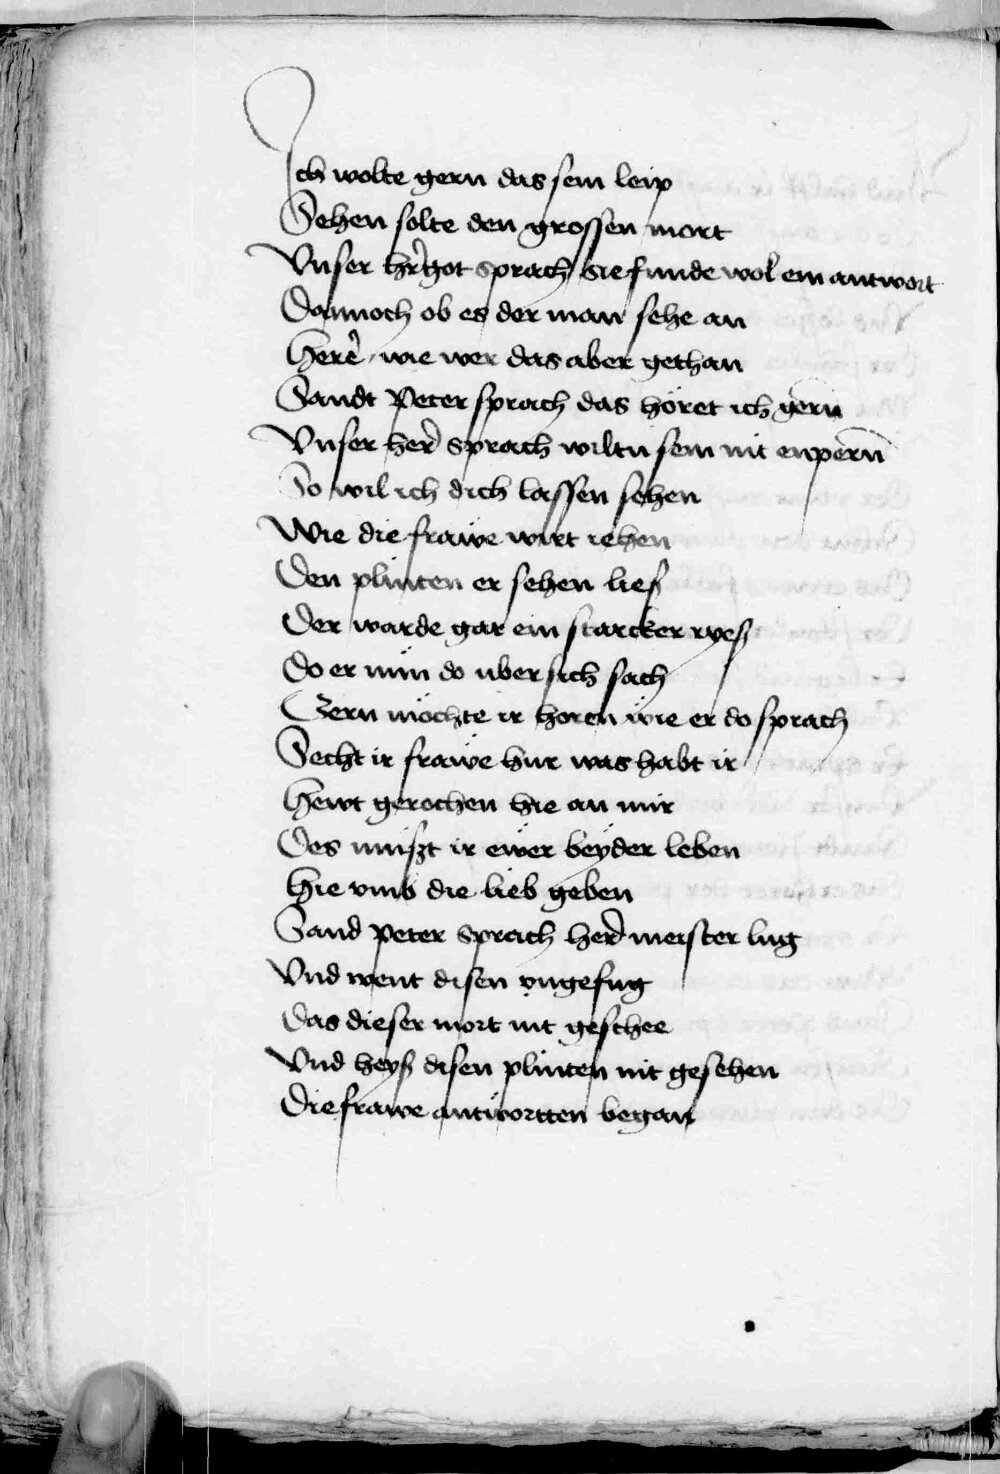 Ich wolte gern das sein leip
Sehen solte den grossen mort
Vnser hr̄got sprach sie funde wol ein antwort
Dannoch ob es der man sehe an
Here wie wer das aber gethan
Sandt Peter sprach das höret ich gern
Vnser her sprach wiltu sein nit enpern
So wil ich dich lassen sehen
Wie die frawe wirt iehen
Den plinten er sehen lies
Der warde gar ein starcker ryeß
Do er nun do uber sich sach
Gern möchte ir horen wie er do sprach
Secht ir frawe hur was habt ir
Hewt gerochen hie an mir
Des mußt ir ewer beyder leben
Hie vmb die lieb geben
Sand peter sprach her meister lug
Vnd went disen vngefug
Das dieser mort nit geschee
Vnd heyß disen plinten nit gesehen
Die frawe antwortten began